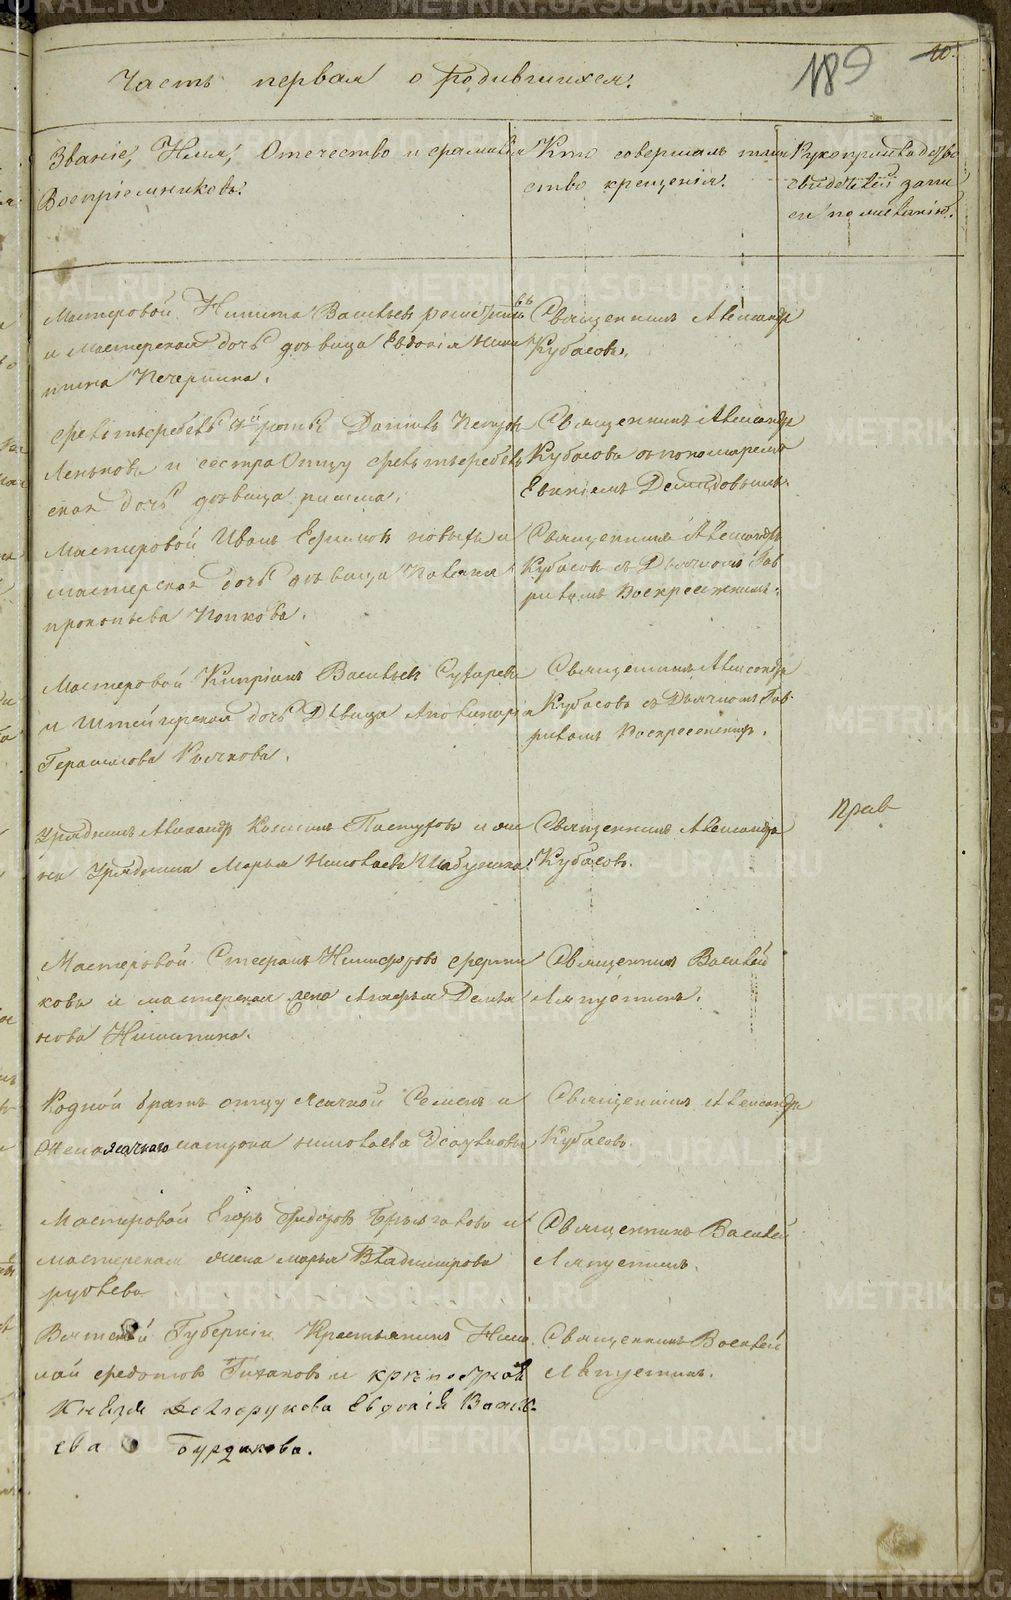 Часть первая о родившихся.
189
10.
Званіе, Имя, Отечество и фамилія
Воспріемниковъ.
Кто совершалъ таин
ство крещенія.
Рукоприкладство
свидетелей записи
по желанію.
Мастеровой Никита Васильевъ
и Мастерская дочь девица Евдокія Ники
тина Печеркина.
Священникъ Александръ
Кубасовъ.
Данилъ Петровъ
Пеньковъ и сестра Отцу
ская дочь девица
Священникъ Александръ
Кубасовъ съ пономаремъ
Евгеніемъ Демидовымъ.
Мастеровой Иванъ Ефимовъ и
мастерская дочь девица
прокопьева Попкова.
Священникъ Александръ
Кубасовъ съ Дьячкомъ Гав
риломъ Воскресенскимъ.
Мастеровой Кипріянъ Васильевъ Сухаревъ
и Штейгерская дочь Девица Аполинарія
Герасимова Клячкова.
Священникъ Александръ
Кубасовъ съ Дьячкомъ Гав
риломъ Воскресенскимъ.
Урядникъ Александръ Козминъ Пастуховъ и же
на Урядника Марья Николаева Шабунина
Священникъ Александръ
Кубасовъ.
Прав
Мастеровой Стефанъ Никифоровъ
ковъ и мастерская жена Анафья Деми
нова Никитина.
Священникъ Василей
Ляпустинъ.
Родной братъ отцу Ясачной Семенъ и
жена ясачнаго матрона николаева
Священникъ Александръ
Кубасовъ.
Мастеровой Егоръ Федоровъ и
мастерская жена марья Владимирова
рублева
Священникъ Василей
Ляпустинъ.
Вятской Губерніи Крестьянинъ Нико
лай Федотовъ и крѣпостная
Князя Долгорукова Евдокія Василь
ева Бурдакова.
Священникъ Василей
Ляпустинъ.
METRIKI.GASO-URAL.RU